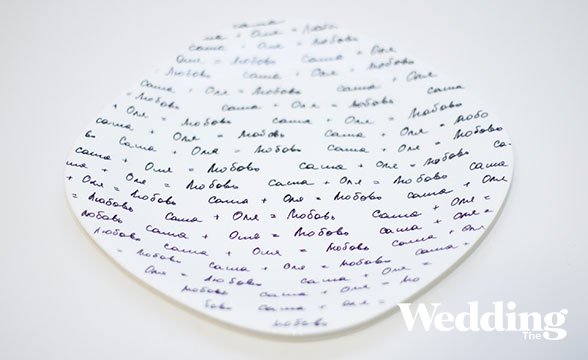 саша
+ Оля = Любовь
саша + Оля = Любовь
= Любовь саша + Оля
Любовь саша + Оля = Любовь
саша + Оля = Любовь саша + Оля
= Любовь саша + Оля = Любовь саша
+ Оля = Любовь саша + Оля = Любовь
саша + Оля = Любовь саша + Оля = Любо
вь саша + Оля = Любовь саша + Оля = Любовь
саша + Оля = Любовь саша + Оля = Любовь са-
ша + Оля = Любовь саша + Оля = Любовь саша
+ Оля = Любовь саша + Оля = Любовь саша + Оля
= Любовь саша + Оля = Любовь саша + Оля =
Любовь саша + Оля = Любовь саша + Оля =
Любовь саша + Оля = Любовь саша + Оля
= Любовь саша + Оля = Любовь саша +
Оля = Любовь саша + Оля =
Любовь саша + Оля = Лю
бовь саша + Оля =
Любовь
The Wedding